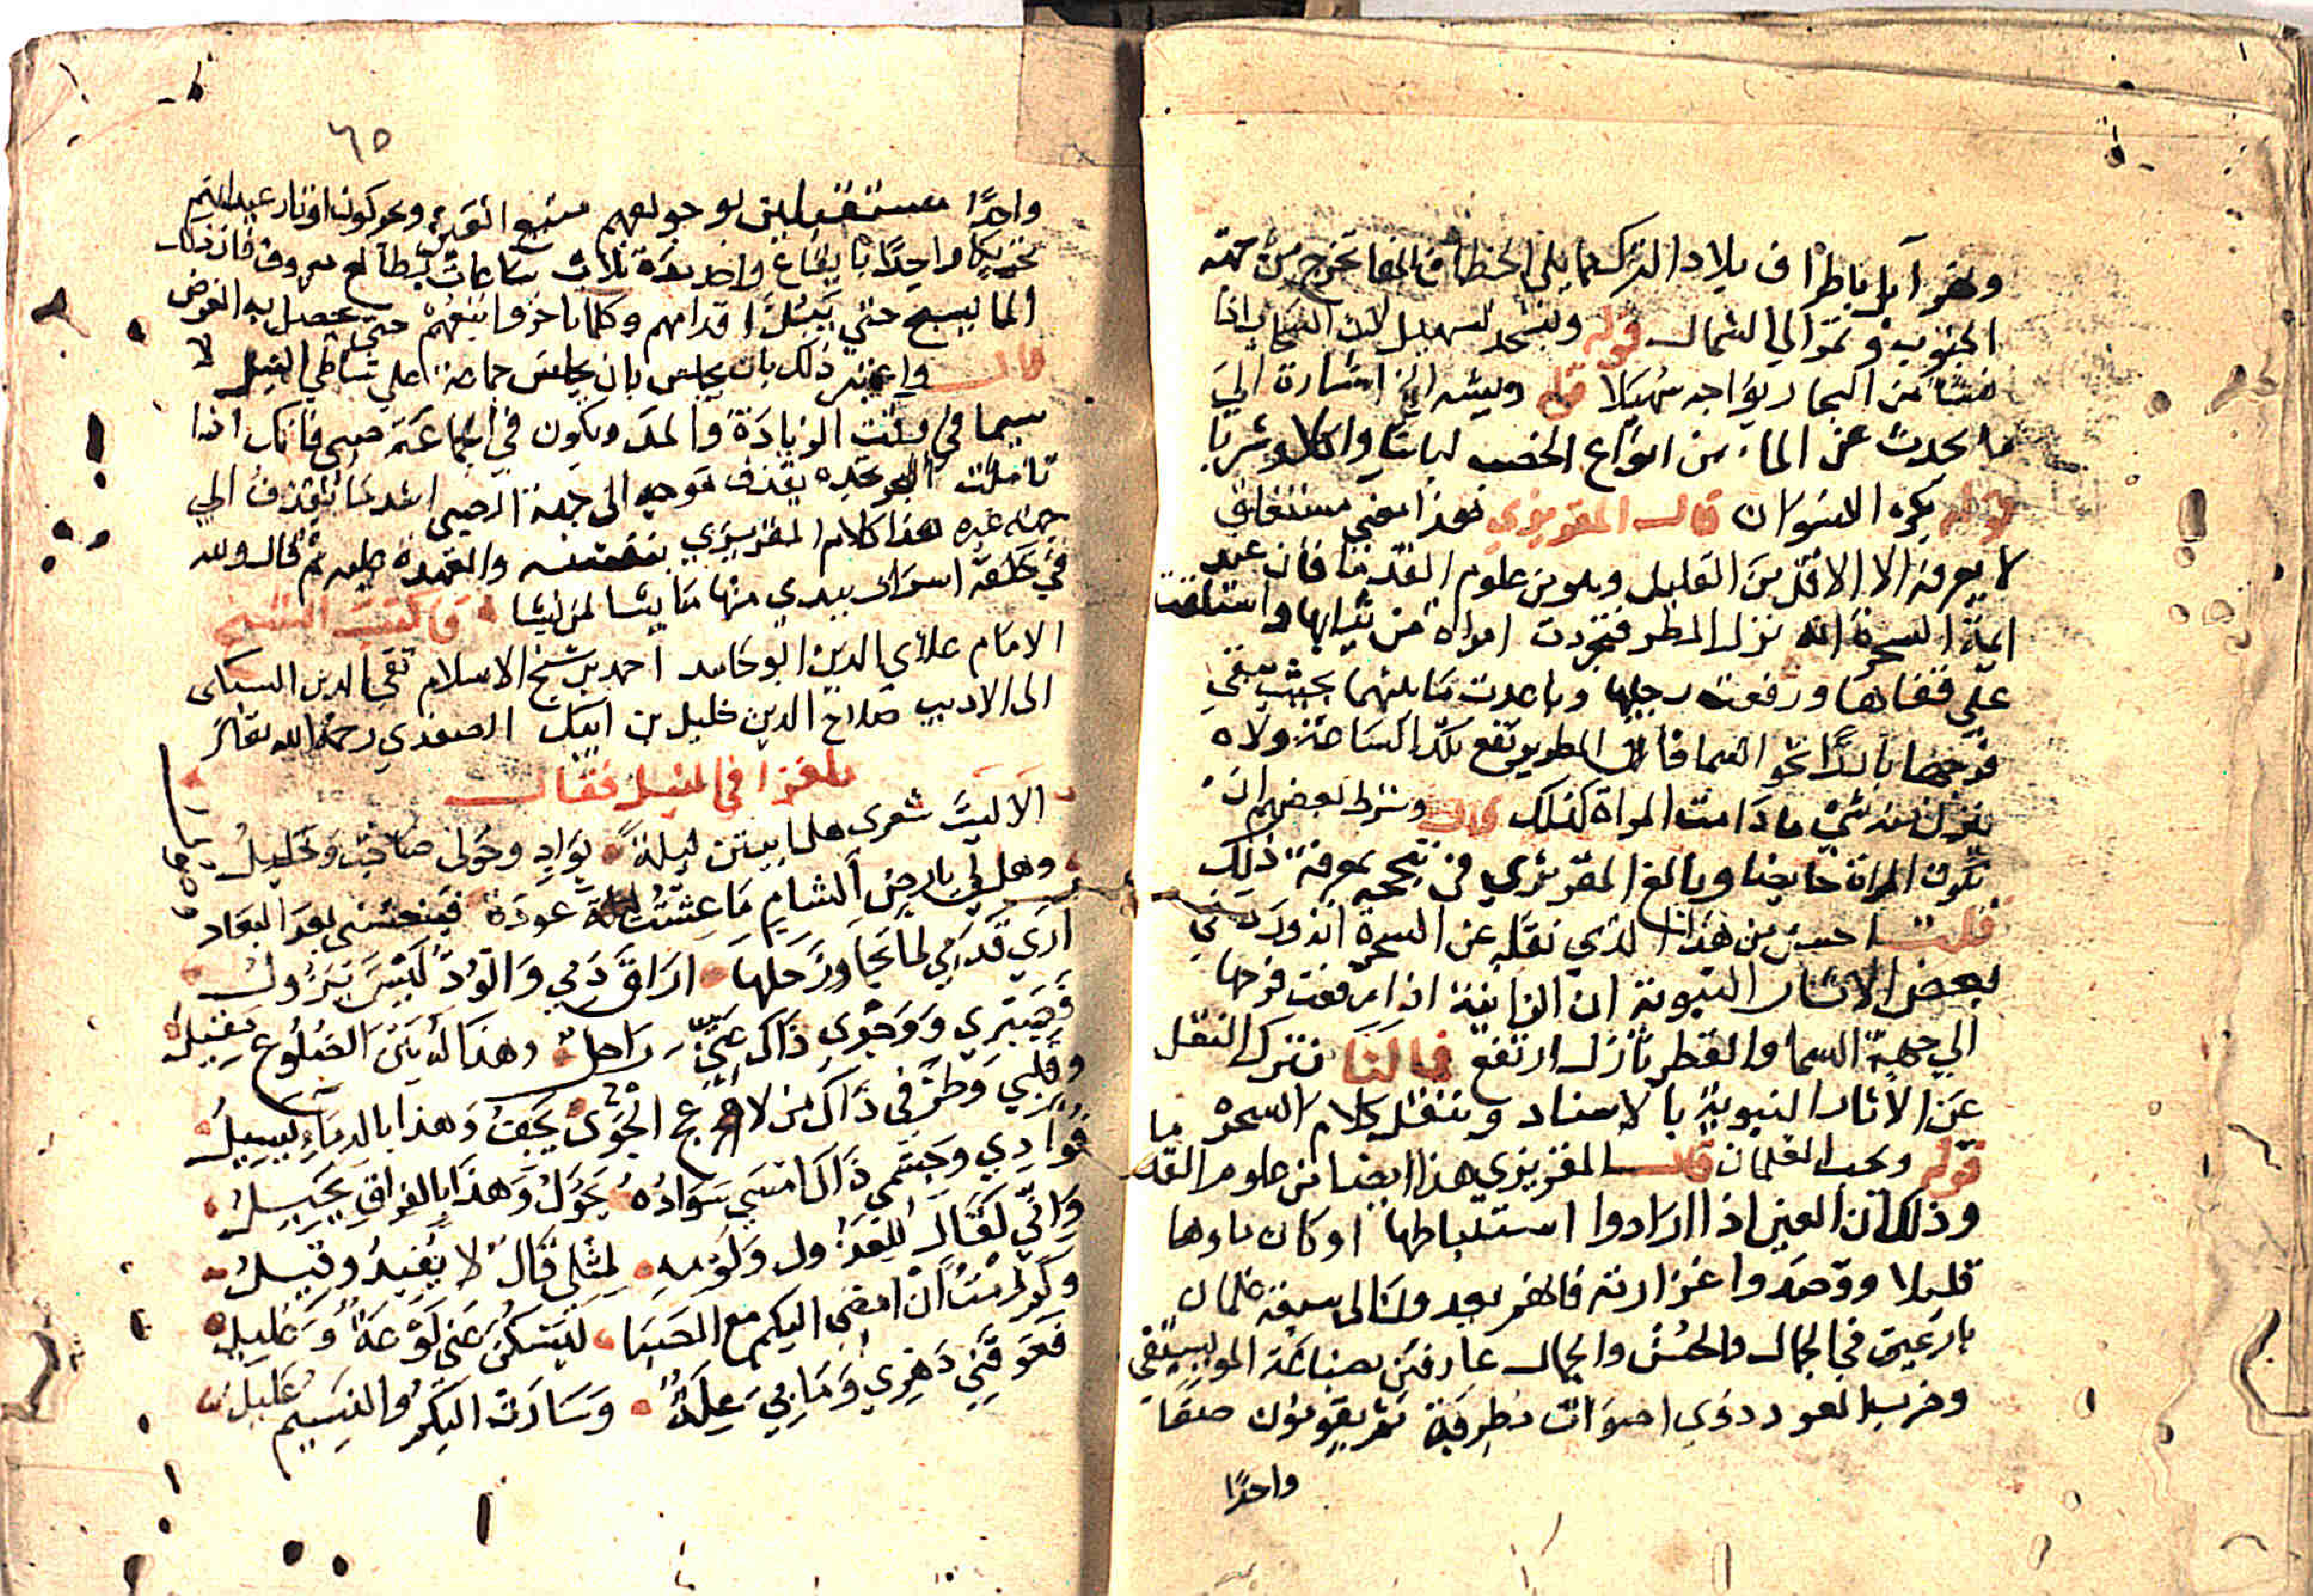 ونهر آبل ناطرا في بلاد الترك مما يلي الخطا فانها تخرج من جهة
الجنوب وتمر الي الشمال قوله وينشد لسهيل لان السحاب اذا
نشا من البحار يواجه سهيلا قوله ويشه الخ اشارة الي
ما يحدث عن الماء من انواع الخصب لباسا واكلا وشربا
قوله يكره النسوان قال المقريزي فهذا معني مستغلق
لا يعرفه الا الاقل من القليل وهو من علوم القدما فان عند
ايمة السحرة انه نزل المطر فتجردت امراة من ثيابها واستلقت
علي قفاها ورفعت رجليها وباعدت ما بينهما بحيث يبقي
فرجها باديا نحو السما فان المطر يرتفع تلك الساعة ولا
ينزل منه شي ما دامت المراة كذلك قال وشرط بعضهم ان
تكون المراة حايضا وبالغ المقريزي في تبجحه بمعرفة ذلك
قلت احسن من هذا الذي نقله عن السحرة انه ورد في
بعض الاثار النبوية ان الزانية اذا رفعت فرجها
الي جهة السما والقطر نازل ارتفع فما لنا نترك النقل
عن الاثار النبوية بالاسناد وننقل كلام السحر ما
قوله ويحب الغلمان قال المقريزي هذا ايضا من علوم القد
وذلك ان العين اذا ارادوا استنباطها او كان ماوها
قليلا وقصدوا غزارته فانهم يعمدون الى سبعة غلمان
بارعين في الجمال والحسن والجمال عارفين بصناعة الموسيقي
وضرب العود دذوي اصوات مطربة ثم يقومون صفا
واحدا
٦٥
واحدا مستقبلين بوجوههم منبع العين ويحركون اوتار عيدانهم
تحريكا واحدا بايقاع واحد مدة ثلاث ساعات بطالع معروف فان ذلك
الما يسيح حتي يبتل اقدامهم وكلما تاخروا تبعهم حتي يحصل به الغرض
قال واعتبر ذلك بان يجلس بان يجلس جماعة علي شاطي النيل لا
سيما في وقت الزيادة والمد ويكون في الجماعة صبي فانك اذا
تاملت البحر تجده يقذف موجه الى جهة الصبي اشد مما يقذف الي
جهة غيره هذا كلام المقريزي بنفسه والعهدة عليه ثم قال ولله
في خلقه اسرار يبدي منها ما يشا لمن يشا قال كتب الشيخ
الامام علاي الدين ابو حامد احمد بن شيخ الاسلام تقي الدين السبكى
الى الاديب صلاح الدين خليل بن ايبك الصفدي رحمه الله تعالى
ملغزا في النيل فقال
الا ليت شعري هل ابيتن ليلة بواد وحولى صاحب وخليل
وهل لي بارض الشام ما عشت عودة فينعشني بعد البعاد
اري قدمي لما تجاوز حلها اراق دمي والود ليس يزول
فصبري ووجدي ذاك عني راحل وهذا له بين الضلوع مقيل
وقلبي وطرفي ذاك من لاعج الجوى يجف وهذا بالدماء يسيل
فوادي وجسمي ذاك امسي سواده يحول وهذا بالفراق نحيل
واني لقال للعذول ولومه لمثلي قال لا يفيد وقيل
وكم رمت ان امضي اليكم مع الصبا ليسكن عني لوعة وغليل
فعوقني دهري وما بي علة وسارت اليكم والنسيم عليل